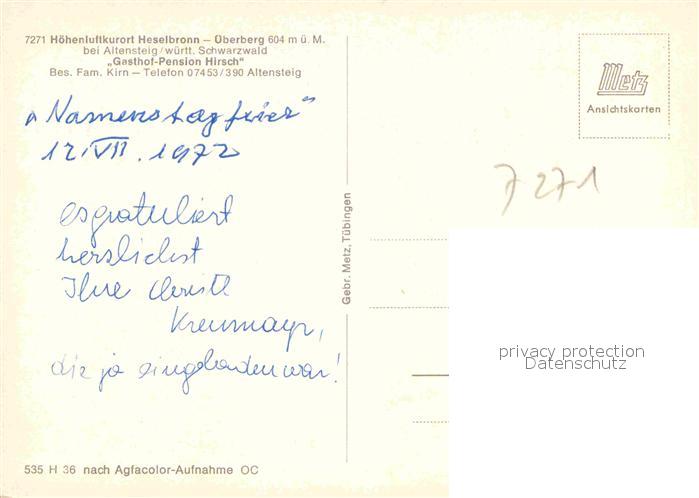 7271 Höhenluftkurort Heselbronn – Überberg 604 m ü. M.
bei Altensteig/württ. Schwarzwald
„Gasthof-Pension Hirsch“
Bes. Fam. Kirn – Telefon 07453/390 Altensteig
Metz
Ansichtskarten
„Namenstagfeier“
12.VII.1972
7271
es gratuliert
herzlichst
Ihre Christl
Kreumayr,
die ja eingeladen war!
Gebr. Metz, Tübingen
privacy protection
Datenschutz
535 H 36 nach Agfacolor-Aufnahme OC